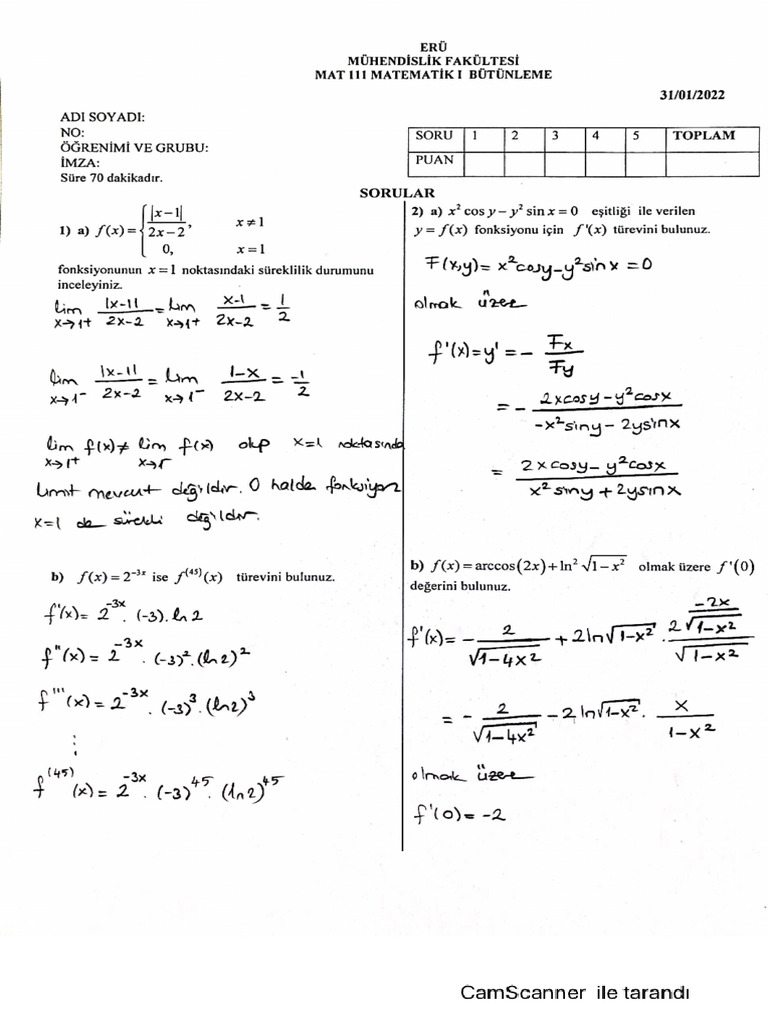 ERÜ
MÜHENDİSLİK FAKÜLTESİ
MAT 111 MATEMATİK I BÜTÜNLEME
31/01/2022
ADI SOYADI:
NO:
ÖĞRENİMİ VE GRUBU:
İMZA:
Süre 70 dakikadır.
SORU 1 2 3 4 5 TOPLAM
PUAN
SORULAR
1) a) f(x) = { |x-1| / 2x-2, x ≠ 1
0, x = 1
fonksiyonunun x = 1 noktasındaki süreklilik durumunu
inceleyiniz.
lim x→1+ |x-1| / 2x-2 = lim x→1+ x-1 / 2x-2 = 1/2
lim x→1- |x-1| / 2x-2 = lim x→1- 1-x / 2x-2 = -1/2
lim x→1+ f(x) ≠ lim x→1- f(x) olup x=1 noktasında
limit mevcut değildir. O halde fonksiyon
x=1 de sürekli değildir.
b) f(x) = 2^(-3x) ise f^(45)(x) türevini bulunuz.
f'(x) = 2^(-3x) . (-3) . ln 2
f''(x) = 2^(-3x) . (-3)² . (ln 2)²
f'''(x) = 2^(-3x) . (-3)³ . (ln 2)³
⋮
f^(45)(x) = 2^(-3x) . (-3)^45 . (ln 2)^45
2) a) x² cos y − y² sin x = 0 eşitliği ile verilen
y = f(x) fonksiyonu için f'(x) türevini bulunuz.
F(x,y) = x² cosy − y² sin x = 0
olmak üzere
f'(x) = y' = − Fx / Fy
= − (2x cosy − y² cosx) / (−x² siny − 2y sinx)
= (2x cosy − y² cosx) / (x² siny + 2y sinx)
b) f(x) = arccos(2x) + ln² √(1−x²) olmak üzere f'(0)
değerini bulunuz.
f'(x) = − 2 / √(1−4x²) + 2 ln √(1−x²) . (−2x / 2√(1−x²)) / √(1−x²)
= − 2 / √(1−4x²) − 2 ln √(1−x²) . x / (1−x²)
olmak üzere
f'(0) = −2
CamScanner ile tarandı